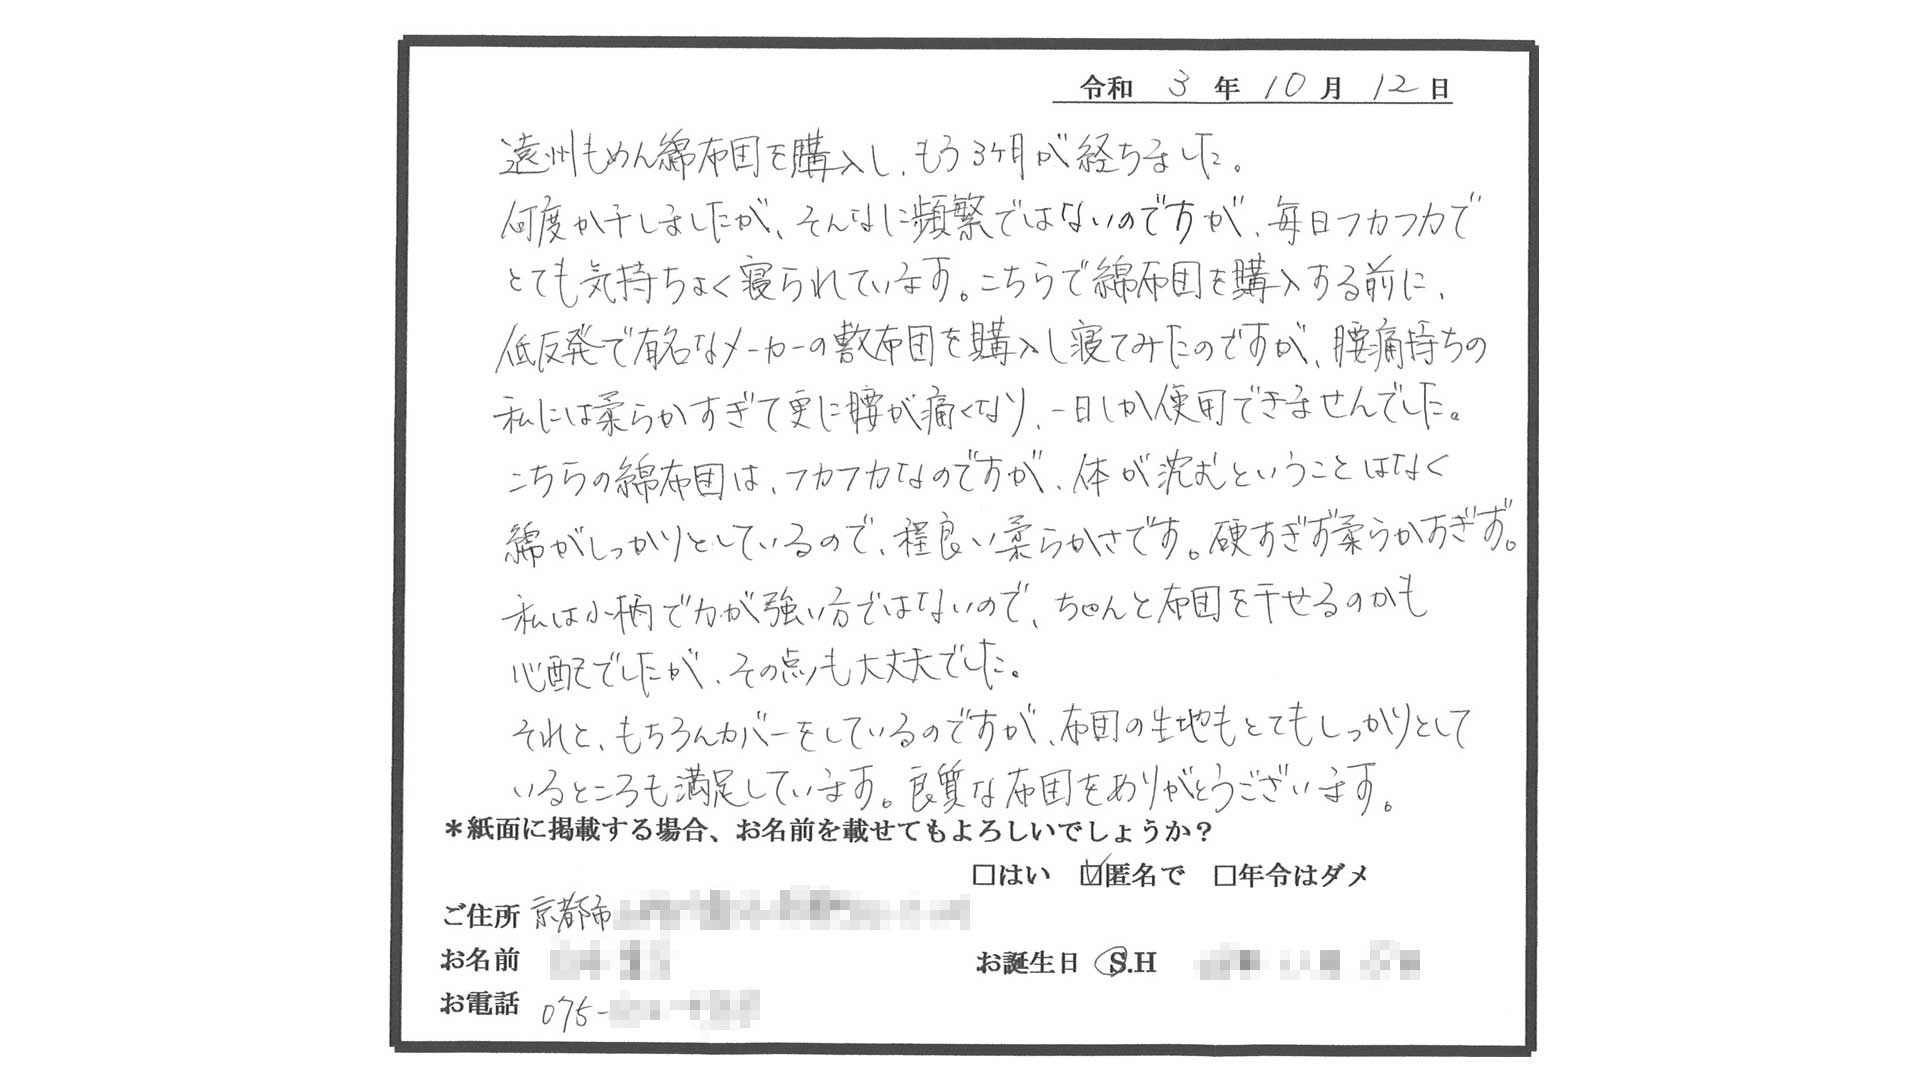 令和 3 年 10 月 12 日
遠州もめん綿布団を購入し、もう3ヶ月が経ちました。
何度か干しましたが、そんなに頻繁ではないのですが、毎日フカフカで
とても気持ちよく寝られています。こちらで綿布団を購入する前に、
低反発で有名なメーカーの敷布団を購入し寝てみたのですが、腰痛持ちの
私には柔らかすぎて更に腰が痛くなり、一日しか使用できませんでした。
こちらの綿布団は、フカフカなのですが、体が沈むということはなく
綿がしっかりとしているので、程良い柔らかさです。硬すぎず柔らかすぎず。
私は小柄で力が強い方ではないので、ちゃんと布団を干せるのかも
心配でしたが、その点も大丈夫でした。
それと、もちろんカバーをしているのですが、布団の生地もとてもしっかりとして
いるところも満足しています。良質な布団をありがとうございます。
＊紙面に掲載する場合、お名前を載せてもよろしいでしょうか？
□はい ☑匿名で □年令はダメ
ご住所 京都市
お名前 お誕生日 S.H
お電話 075-